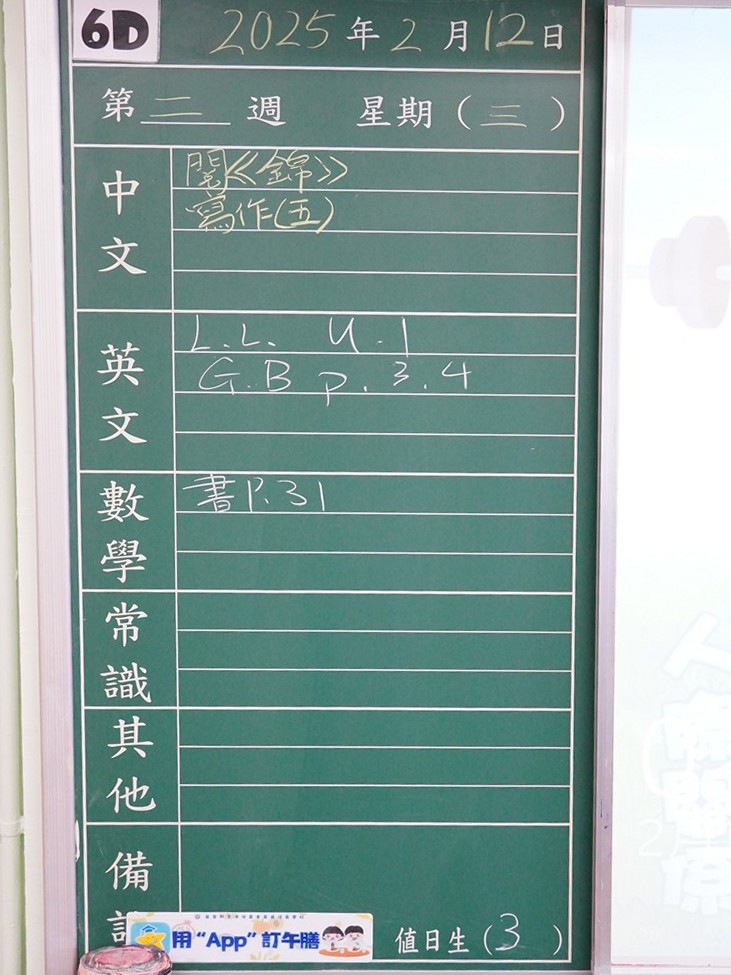 6D
2025年2月12日
第二週 星期（三）
中文
閱《錦》
寫作(五)
英文
L.L. U.1
G.B p.3.4
數學
書P.31
常識
其他
備
用“App”訂午膳
值日生（3）